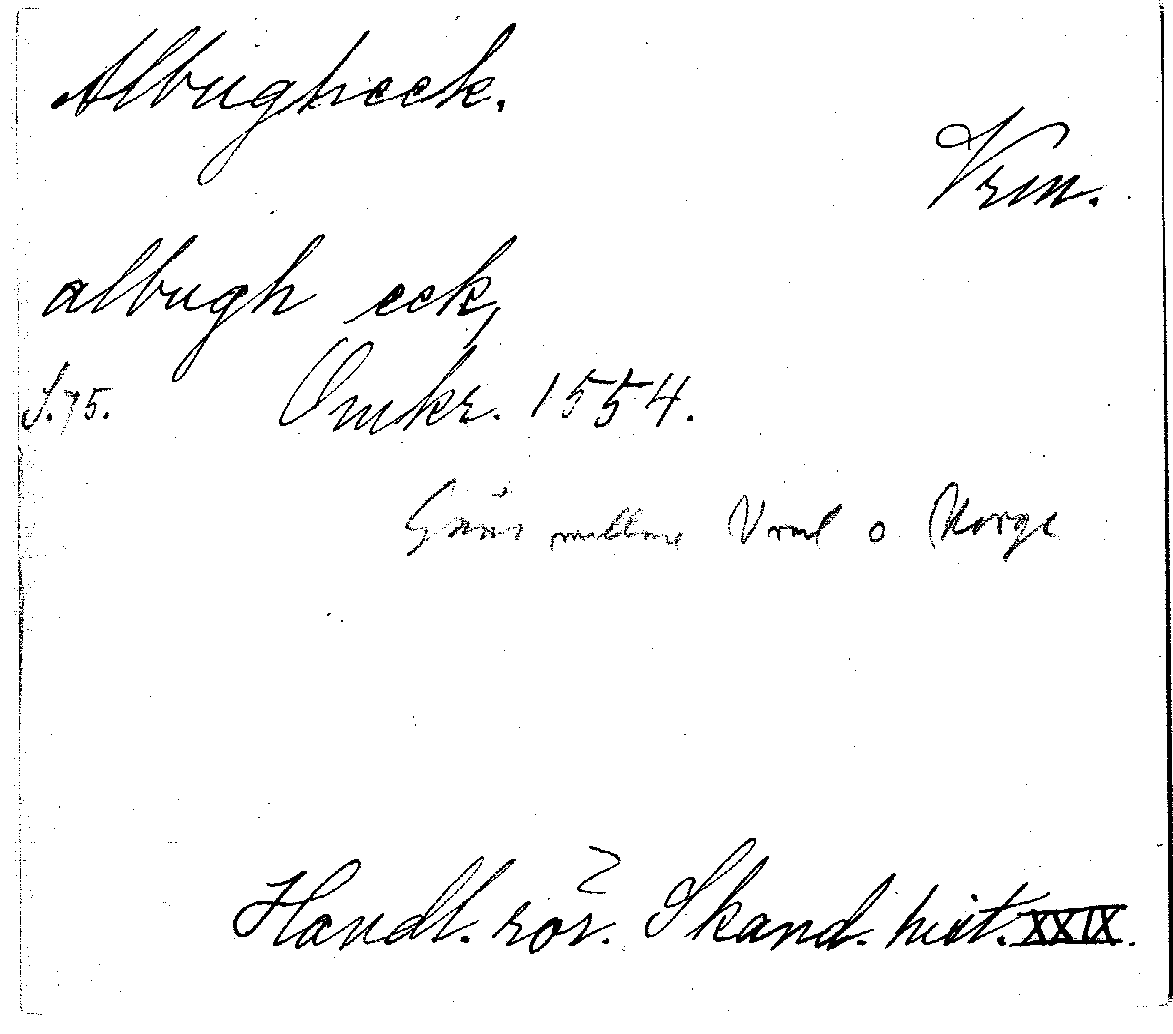 Albugheek.
Vrm.
albugh eek,
S. 75. Omkr. 1554.
Gräns mellan Vrml o Norge
Handl. rör. Skand. hist. XXIX.